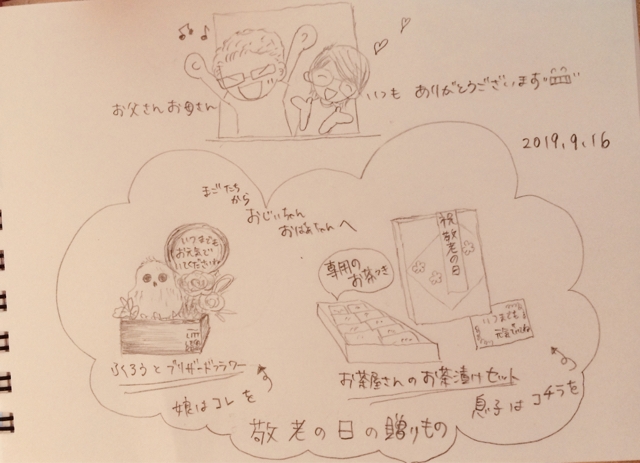 お父さんお母さん
いつも ありがとうございます
2019.9.16
まごたち
から
おじいちゃん
おばあちゃんへ
いつまでも
お元気で
いてくださいね
祝敬老の日
専用の
お茶つき
いつまでも
元気でいてね
ふくろうとプリザードフラワー
お茶屋さんのお茶漬けセット
娘はコレを
息子はコチラを
敬老の日の贈りもの